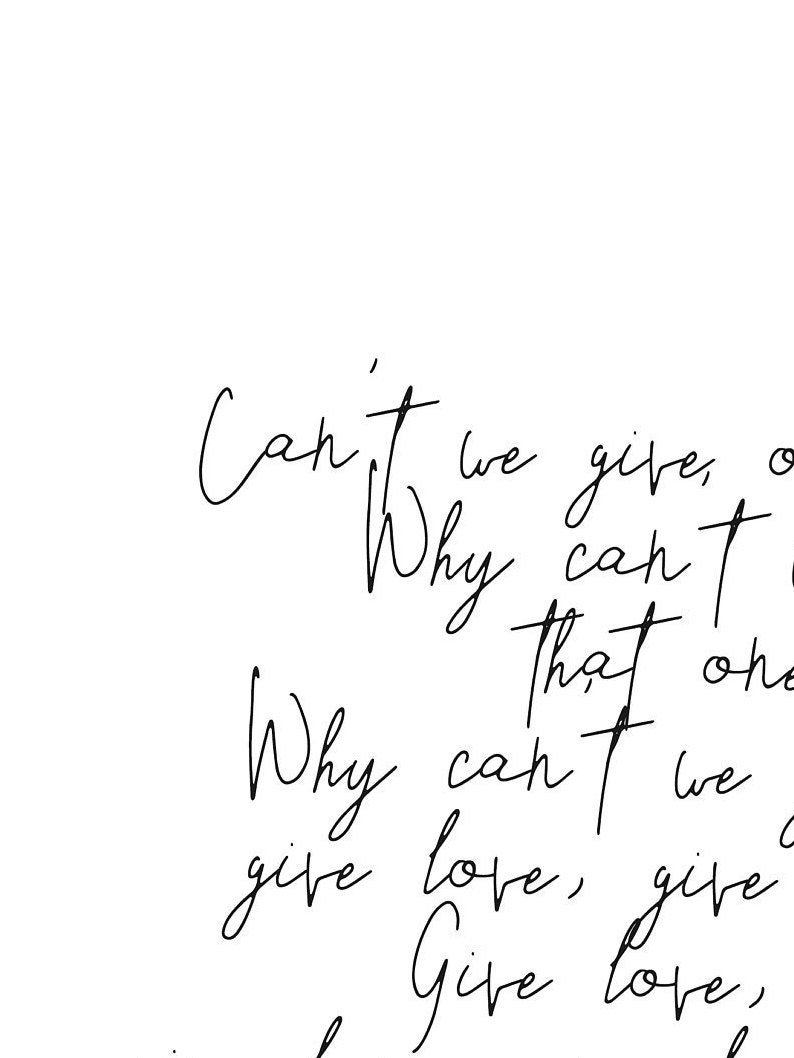 Can't we give,
Why can't
that one
Why can't we
give love, give
Give love,